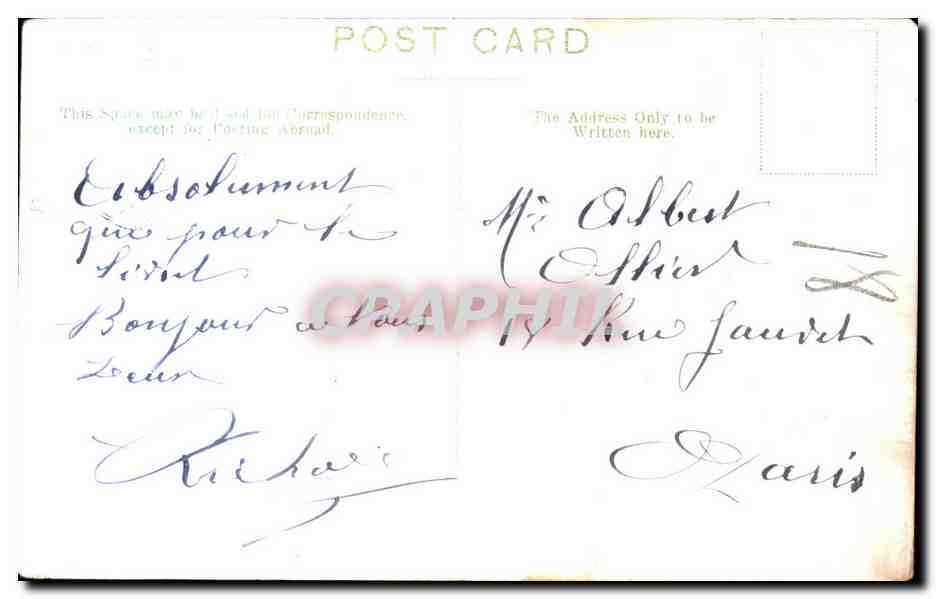 POST CARD
This Space may be Used for Correspondence,
except for Posting Abroad.
The Address Only to be
Written here.
Absolument
que pour le
livret
Bonjour a Vous
Deux
Mr Albert
Ollier
18 Rue Jaudet
Paris
18
CRAPHIL